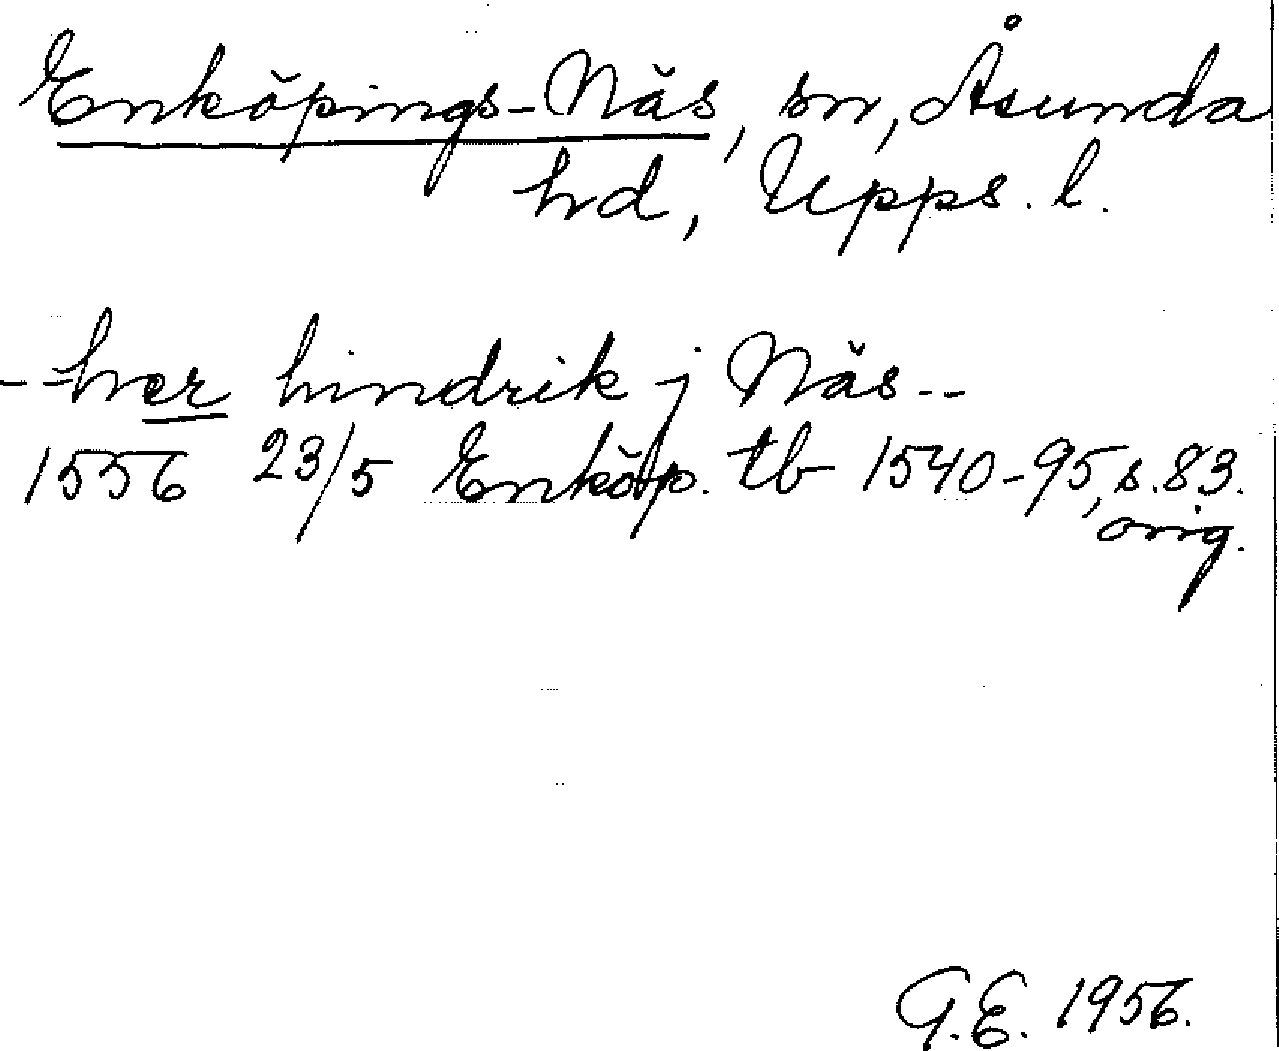 Enköpings-Näs, sn, Åsunda
hd, Upps. l.
-- her hindrik j Näs --
1556 23/5 Enköp. tb 1540-95, s. 83.
orig.
G.E. 1956.